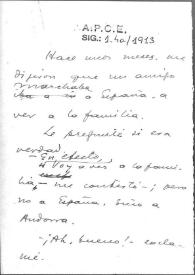 A.P.C.E.
SIG.: 1.40/1913
Hace unos meses, me
dijeron que un amigo
marchaba
iba a ir a España, a
ver a la familia.
Le pregunté si era
verdad.
- En efecto,
- Voy a ver a la fami-
lia, - me contestó -; pero
no a España, sino a
Andorra.
- ¡Ah, bueno! - excla-
mé.